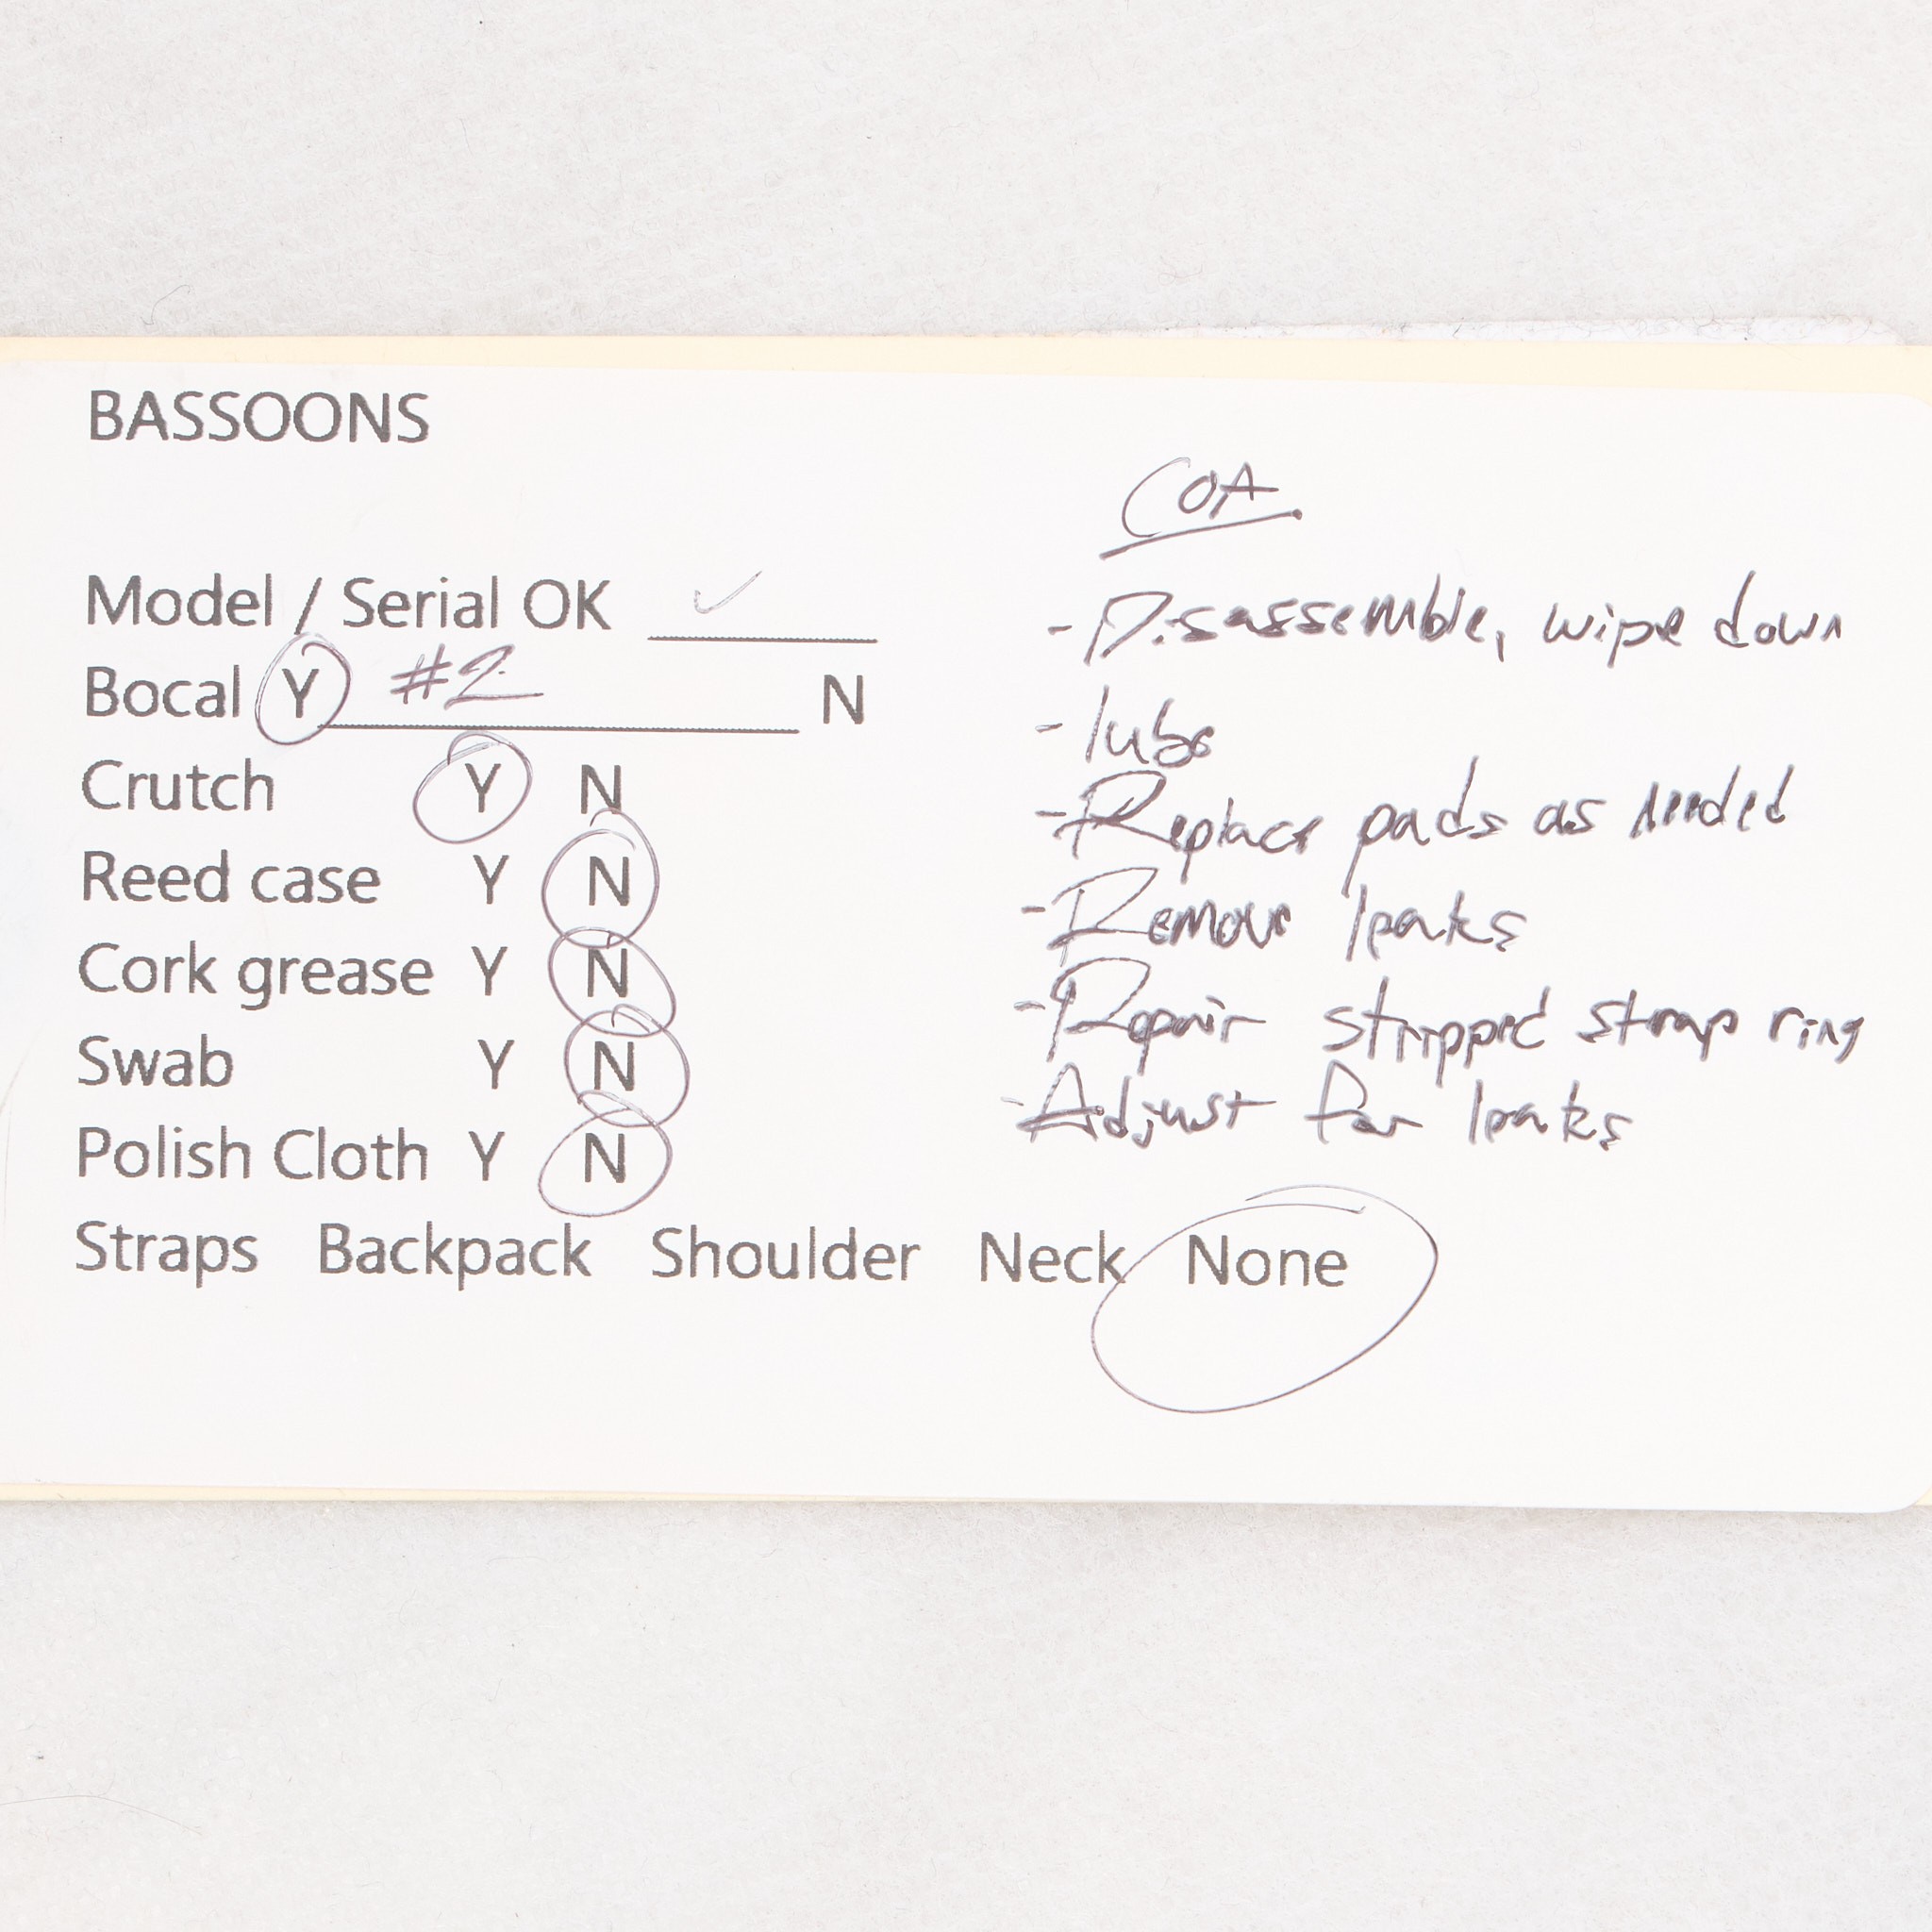 BASSOONS
Model / Serial OK ✓
Bocal Y #2 N
Crutch Y N
Reed case Y N
Cork grease Y N
Swab Y N
Polish Cloth Y N
Straps Backpack Shoulder Neck None
COA
- Disassemble, wipe down
- lube
- Replace pads as needed
- Remove leaks
- Repair stripped strap ring
- Adjust for leaks